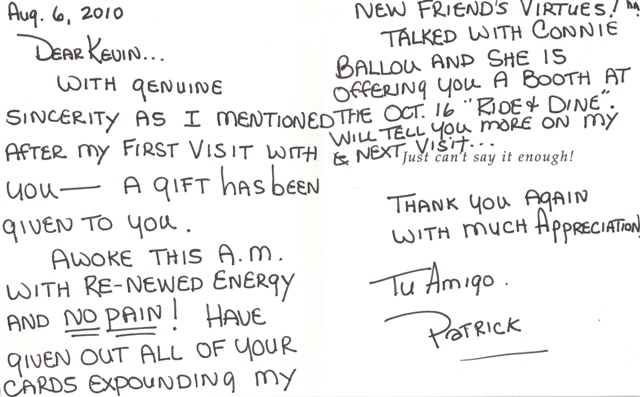 Aug. 6, 2010
DEAR KEVIN...
WITH GENUINE
SINCERITY AS I MENTIONED
AFTER MY FIRST VISIT WITH
YOU— A GIFT HAS BEEN
GIVEN TO YOU.
AWOKE THIS A.M.
WITH RE-NEWED ENERGY
AND NO PAIN! HAVE
GIVEN OUT ALL OF YOUR
CARDS EXPOUNDING MY
NEW FRIEND'S VIRTUES!
TALKED WITH CONNIE
BALLOU AND SHE IS
OFFERING YOU A BOOTH AT
THE OCT. 16 "RIDE & DINE".
WILL TELL YOU MORE ON MY
NEXT VISIT...
Just can't say it enough!
THANK YOU AGAIN
WITH MUCH APPRECIATION!
TU AMIGO.
PATRICK